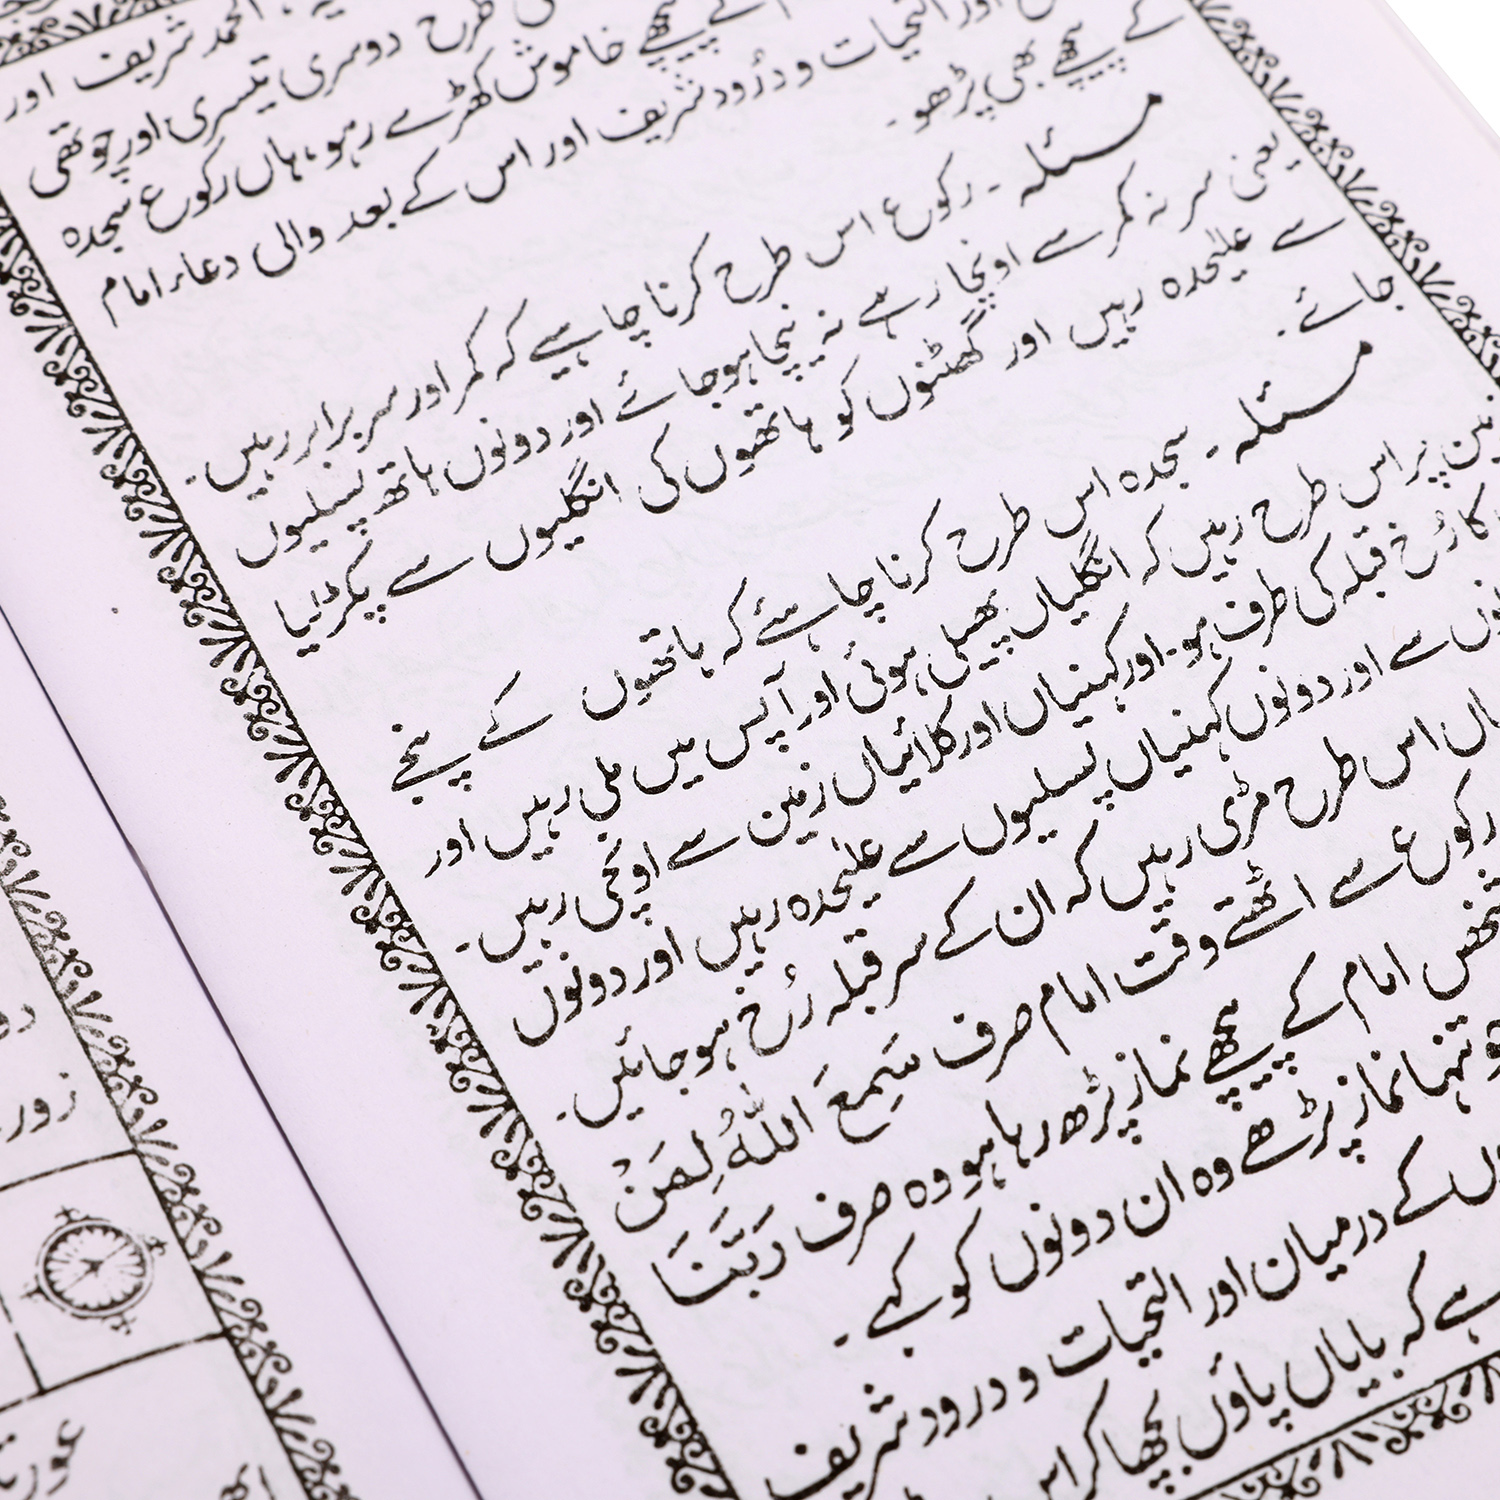 الحمد شریف اور
طرح دوسری تیسری اور چوتھی
کے پیچھے خاموش کھڑے رہو، ہاں رکوع سجدہ
اور التحیات و درُود شریف اور اس کے بعد والی دعاء امام
کے پیچھے بھی پڑھو۔
مسئلہ ۔ رکوع اس طرح کرنا چاہیے کہ کمر اور سر برابر رہیں۔
یعنی سر نہ کمر سے اونچا رہے نہ نیچا ہو جائے اور دونوں ہاتھ پسلیوں
سے علیٰحدہ رہیں اور گھٹنوں کو ہاتھوں کی انگلیوں سے پکڑ لیا
جائے۔
مسئلہ ۔ سجدہ اس طرح کرنا چاہئے کہ ہاتھوں کے پنجے
پر اس طرح رہیں کہ انگلیاں پھیلی ہوئی اور آپس میں ملی رہیں اور
کا رُخ قبلہ کی طرف ہو۔ اور کہنیاں اور کلائیاں زمین سے اونچی رہیں۔
سے اور دونوں کہنیاں پسلیوں سے علیٰحدہ رہیں اور دونوں
اس طرح مڑی رہیں کہ ان کے سر قبلہ رُخ ہو جائیں۔
رکوع سے اٹھتے وقت امام صرف سَمِعَ اللّٰهُ لِمَنْ
امام کے پیچھے نماز پڑھ رہا ہو وہ صرف رَبَّنَا
جو تنہا نماز پڑھے وہ ان دونوں کو کہے۔
کے درمیان اور التحیات و درود شریف
ہے کہ بایاں پاؤں بچھا کر اس
زور